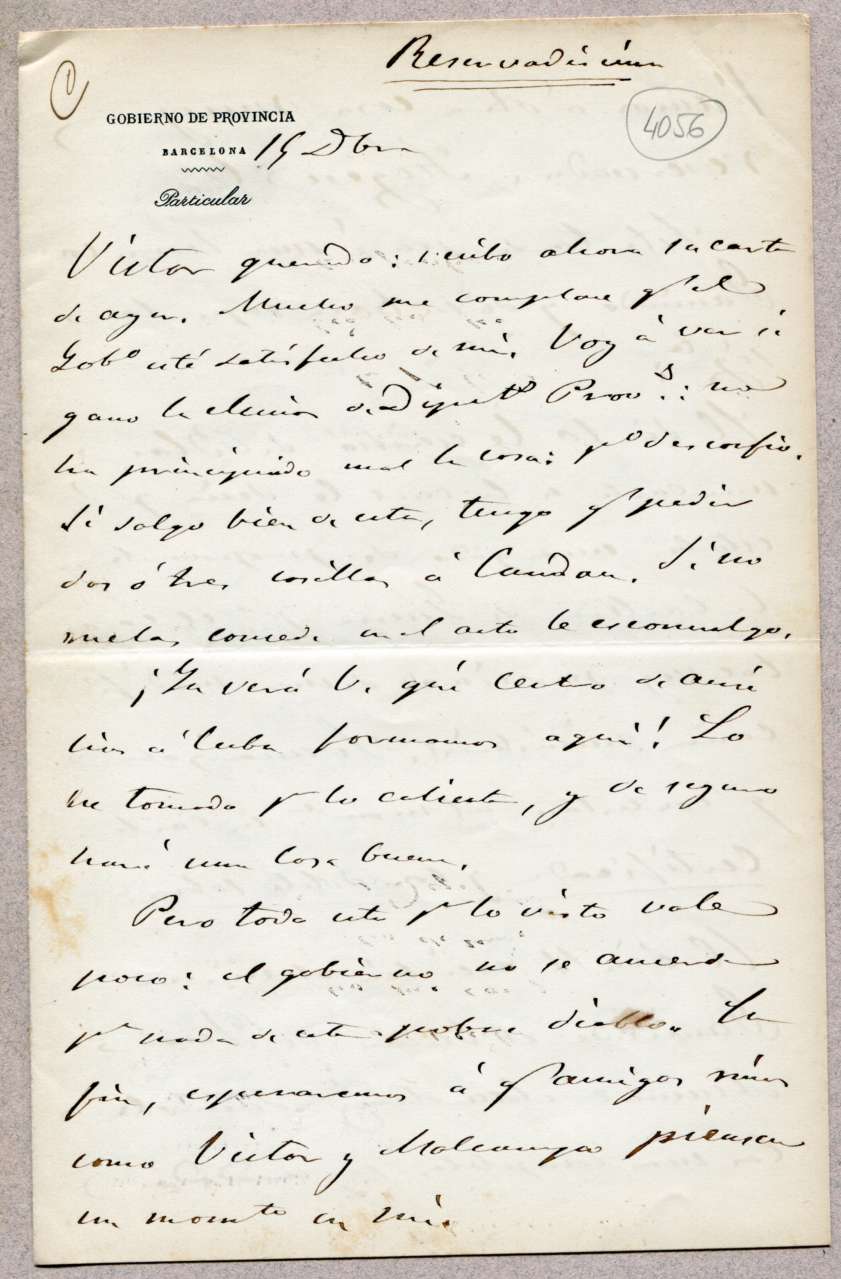 Reservadísima
1
4056
GOBIERNO DE PROVINCIA
BARCELONA 15 Dbre
Particular
Victor querido: recibo ahora su carta
de ayer. Mucho me complace qe el
Gobo esté satisfecho de mí. Voy á ver si
gano la eleccion de Diputs Provs: no
ha principiado mal la cosa: po desconfio.
Si salgo bien de esta, tengo qe pedir
dos ó tres cosillas á Candau. Si no
me las concede en el acto le escomulgo.
¡Ya verá V. qué Centro de auxi
lios á Cuba formamos aqui! Lo
he tomado pr lo caliente, y de seguro
hará una cosa buena.
Pero todo esto pr lo visto vale
poco: el gobierno no se acuerda
pa nada de este pobre diablo. En
fin, esperaremos á qe amigos mios
como Victor y Malcampo piensen
un momto en mí.